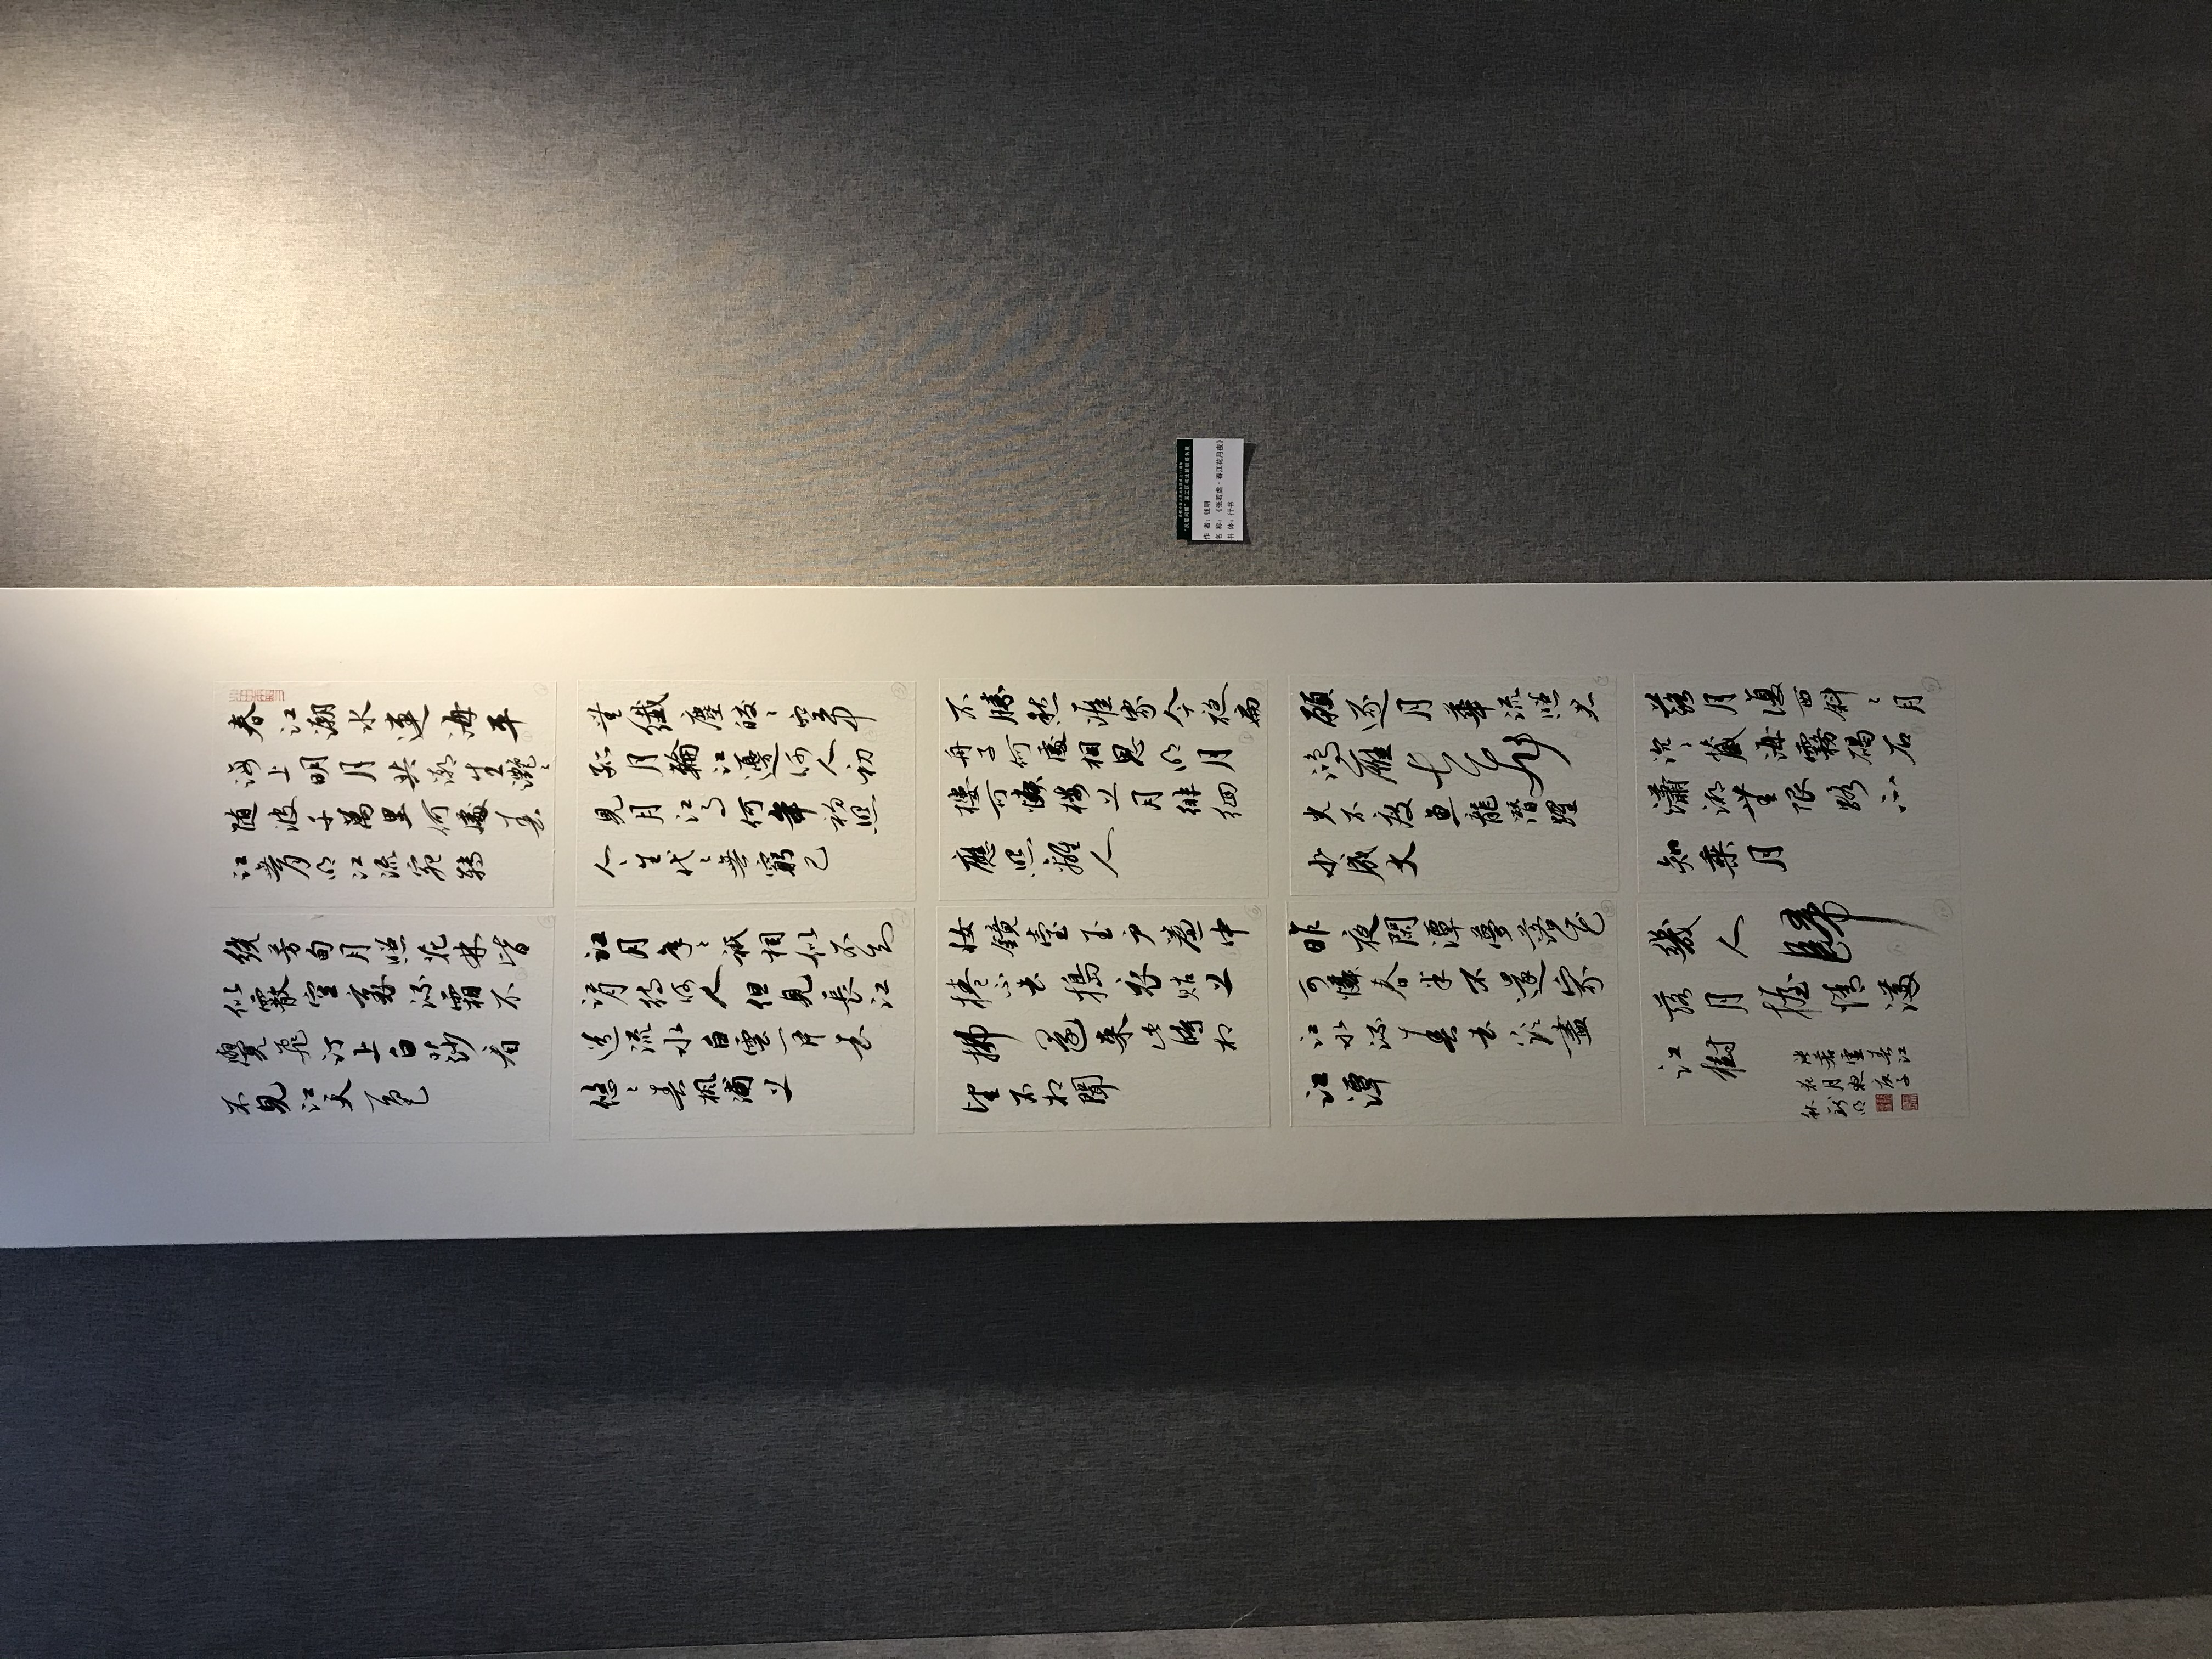 春江潮水連海平
海上明月共潮生灔〻
随波千萬里何處春
江無月明江流宛轉
繞芳甸月照花林皆
似霰空裏流霜不
覺飛汀上白莎看
不見江天一色
無纖塵皎〻空中
孤月輪江邊何人初
見月江月何年初照
人〻生代〻無窮已
江月年〻祇相似不知
江月待何人但見長江
送流水白雲一片去
悠〻青楓浦上
不勝愁誰家今夜扁
舟子何處相思明月
樓可憐樓上月徘徊
應照離人
妝鏡臺玉户簾中
捲不去擣衣砧上
拂還来此時相
望不相聞
願逐月華流照君
鴻雁長飛
光不度魚龍潛躍
水成文
昨夜閑潭夢落花
可憐春半不還家
江水流春去欲盡
江潭
落月復西斜〻月
沉〻藏海霧碣石
瀟湘無限路不
知乘月
幾人歸
落月摇情滿
江樹
張若虚春江
花月夜庚子
秋钱明
作 者：钱明
名 称：《张若虚·春江花月夜》
书 体：行书